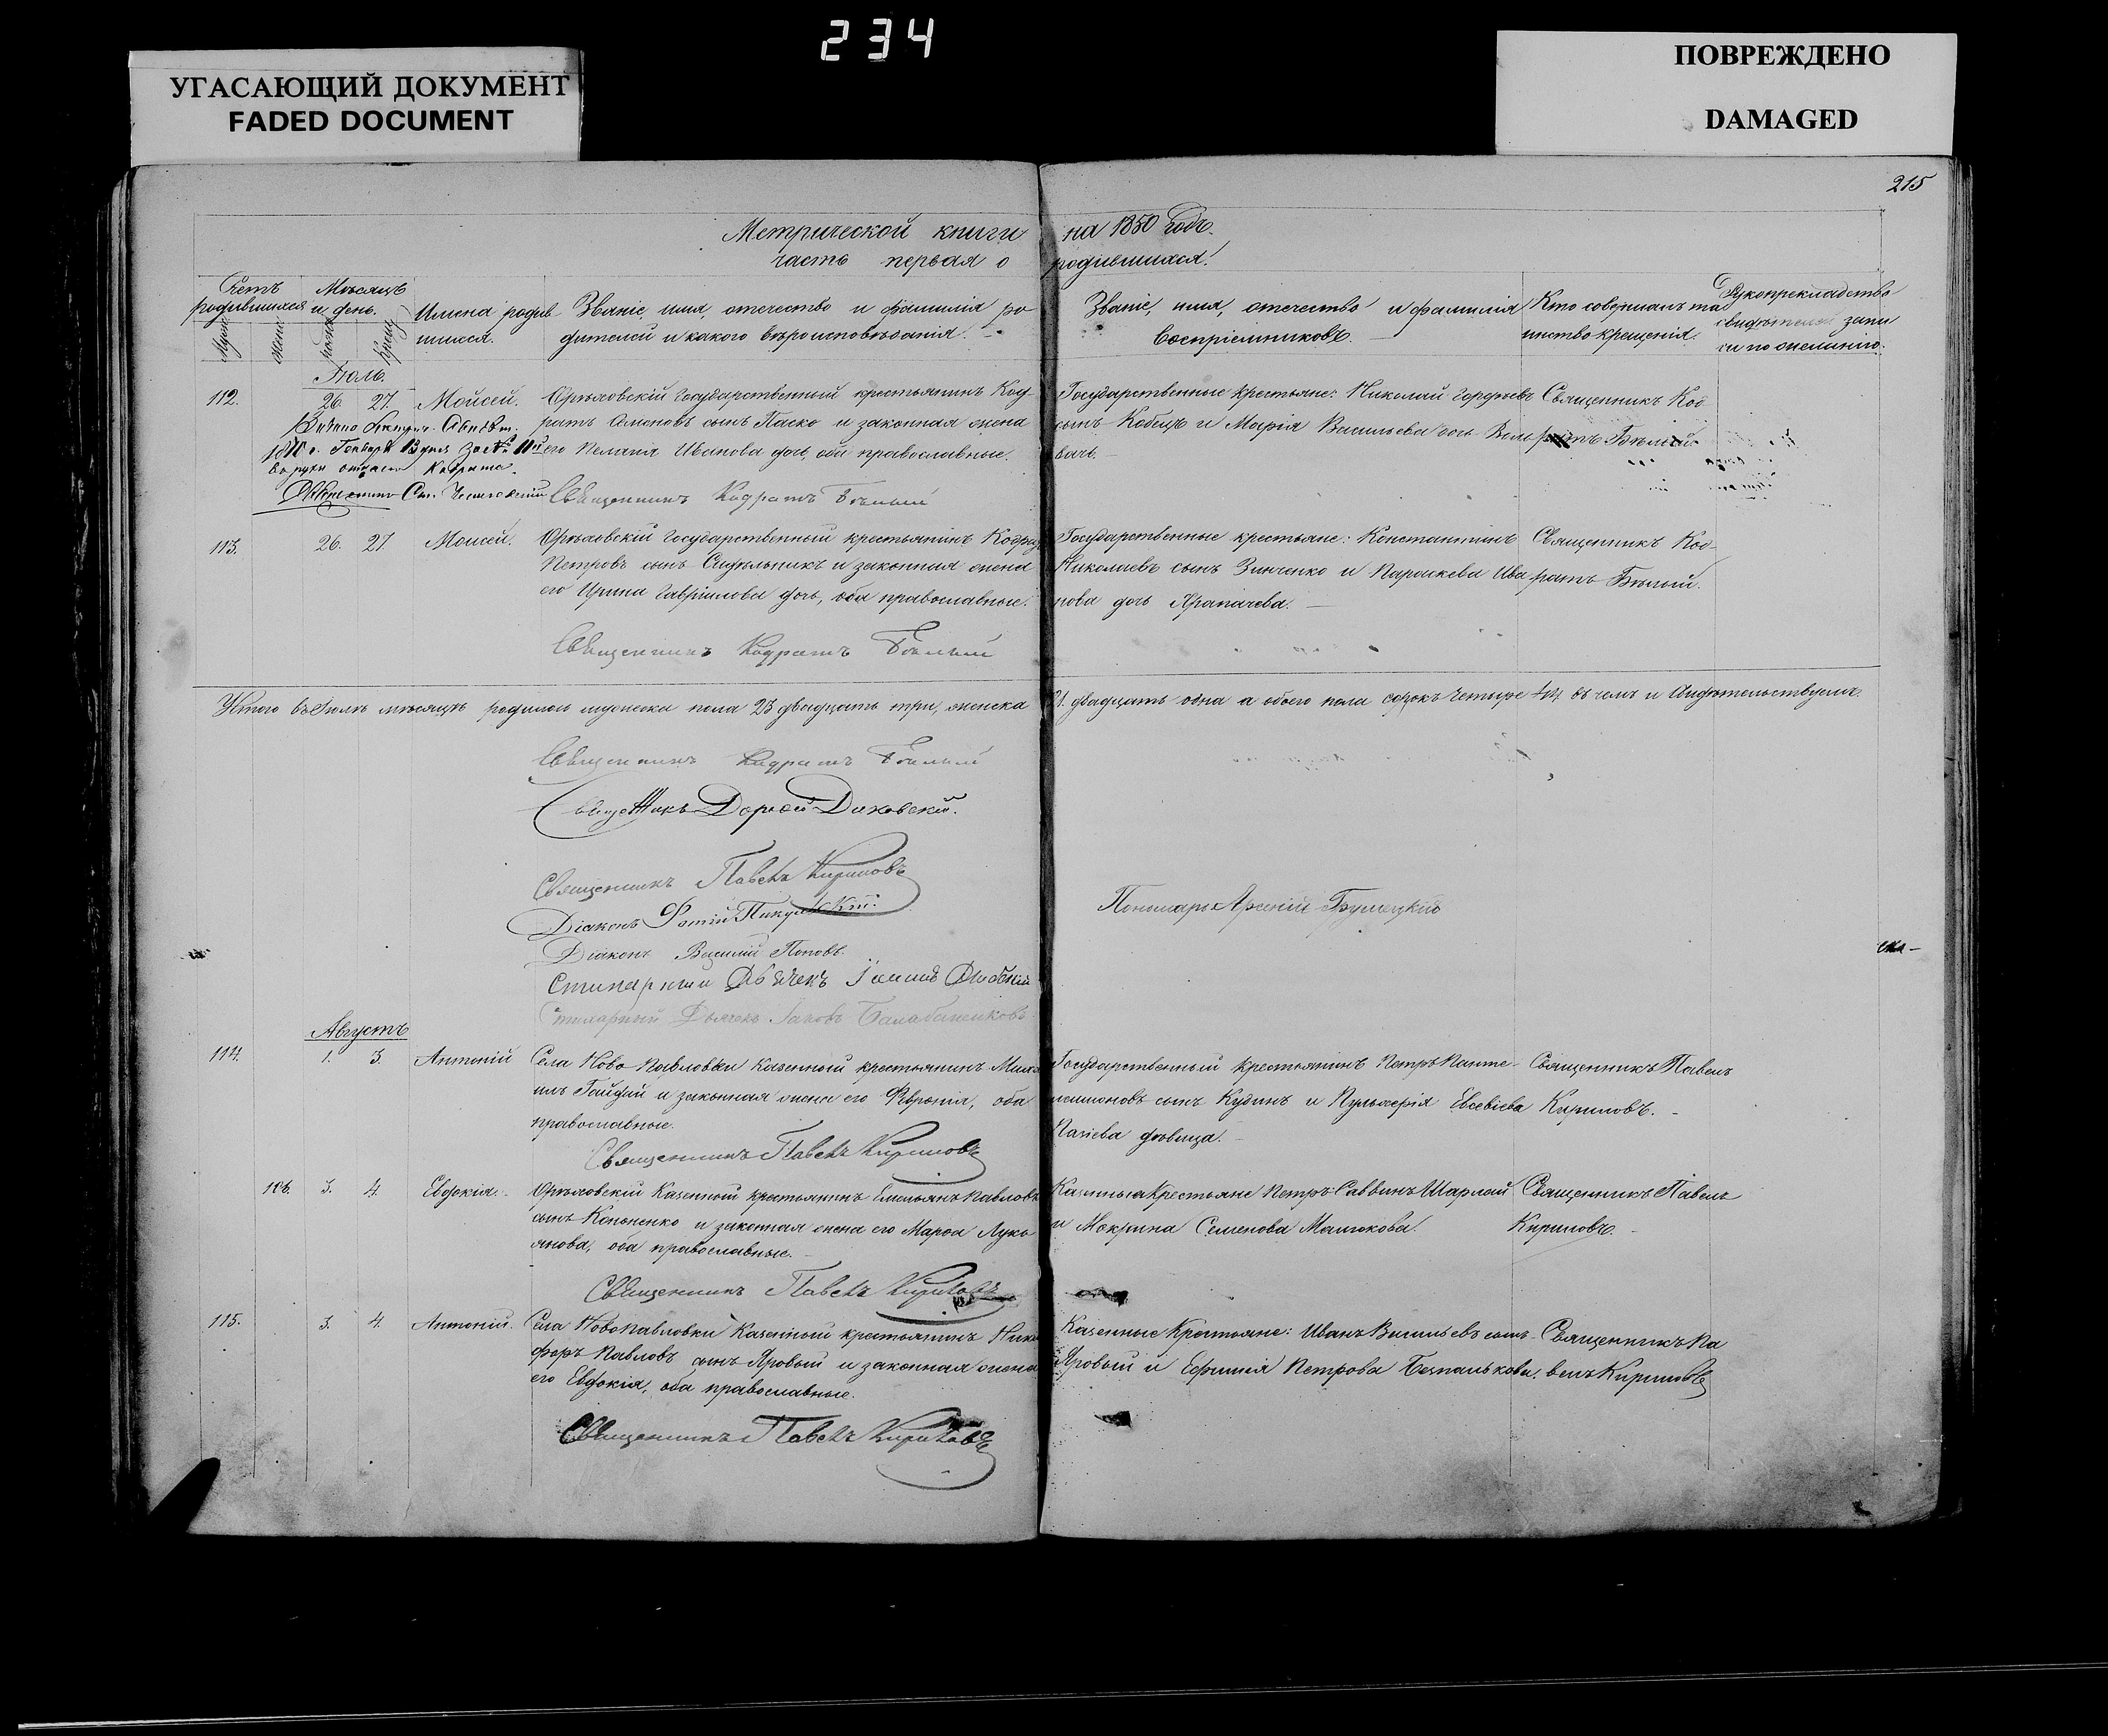 234
УГАСАЮЩИЙ ДОКУМЕНТ
FADED DOCUMENT
ПОВРЕЖДЕНО
DAMAGED
215
Метрической книги на 1850 годъ.
часть первая о родившихся.
Счетъ родившихся
Мѣсяцъ и день.
Имена родившихся.
Званіе имя, отечество и фамилія родителей и какого вѣроисповѣданія.
Званіе, имя, отечество и фамилія
Воспріемниковъ.
Кто совершалъ таинство крещенія.
Рукоприкладство свидѣтелей записи по желанію.
Іюль.
112. 26. 27. Мойсей. Орѣховскій государственный крестьянинъ Код-
ратъ сынъ Паско и законная жена
его Пелагія Иванова дочь, оба православные.
Государственные крестьяне: Николай Гордѣевъ
сынъ Кобецъ и Марія Васильева дочь
Священникъ Код-
ратъ Бѣлый.
Священникъ Кодратъ Бѣлый
113. 26. 27. Моисей. Орѣховскій государственный крестьянинъ Кодратъ
Петровъ сынъ Сидѣльникъ и законная жена
его Ирина Гавріилова дочь, оба православные.
Государственные крестьяне: Константинъ
Николаевъ сынъ Зинченко и Параскева
дочь
Священникъ Код-
ратъ Бѣлый.
Священникъ Кодратъ Бѣлый
Итого въ Іюлѣ мѣсяцѣ родилось мужеска пола 23 двадцать три, женска 21. двадцать одна а обоего пола сорокъ четыре 44 въ чемъ и свидѣтельствуемъ.
Священникъ Кодратъ Бѣлый
Священникъ
Священникъ Павелъ Кириловъ
Діаконъ Фотій
Пономарь Арсеній
Діаконъ Василій Поповъ.
Дьячекъ
Дьячекъ Іаковъ
Августъ
114. 1. 3. Антоній Села Ново Павловки казенный крестьянинъ Миха-
илъ Гайдай и законная жена его Февронія, оба
православные.
Государственный крестьянинъ Петръ Панте-
леимоновъ сынъ Кудинъ и Пульхерія Евсевіева
дѣвица.
Священникъ Павелъ
Кириловъ.
Священникъ Павелъ Кириловъ
106. 3. 4. Евдокія. Орѣховскій казенный крестьянинъ Емельянъ Павловъ
сынъ Кононенко и законная жена его Марѳа Лукь-
янова, оба православные.
Казенные крестьяне Петръ Саввинъ Шарлай
и Мокрина Семенова Малюкова.
Священникъ Павелъ
Кириловъ.
Священникъ Павелъ Кириловъ
115. 3. 4. Антоній. Села Новопавловки казенный крестьянинъ Ники-
форъ Павловъ сынъ Яровый и законная жена
его Евдокія, оба православные.
Казенные крестьяне: Иванъ Васильевъ сынъ
Яровый и Ефимія Петрова Безпалькова.
Священникъ Па
велъ Кириловъ
Священникъ Павелъ Кириловъ